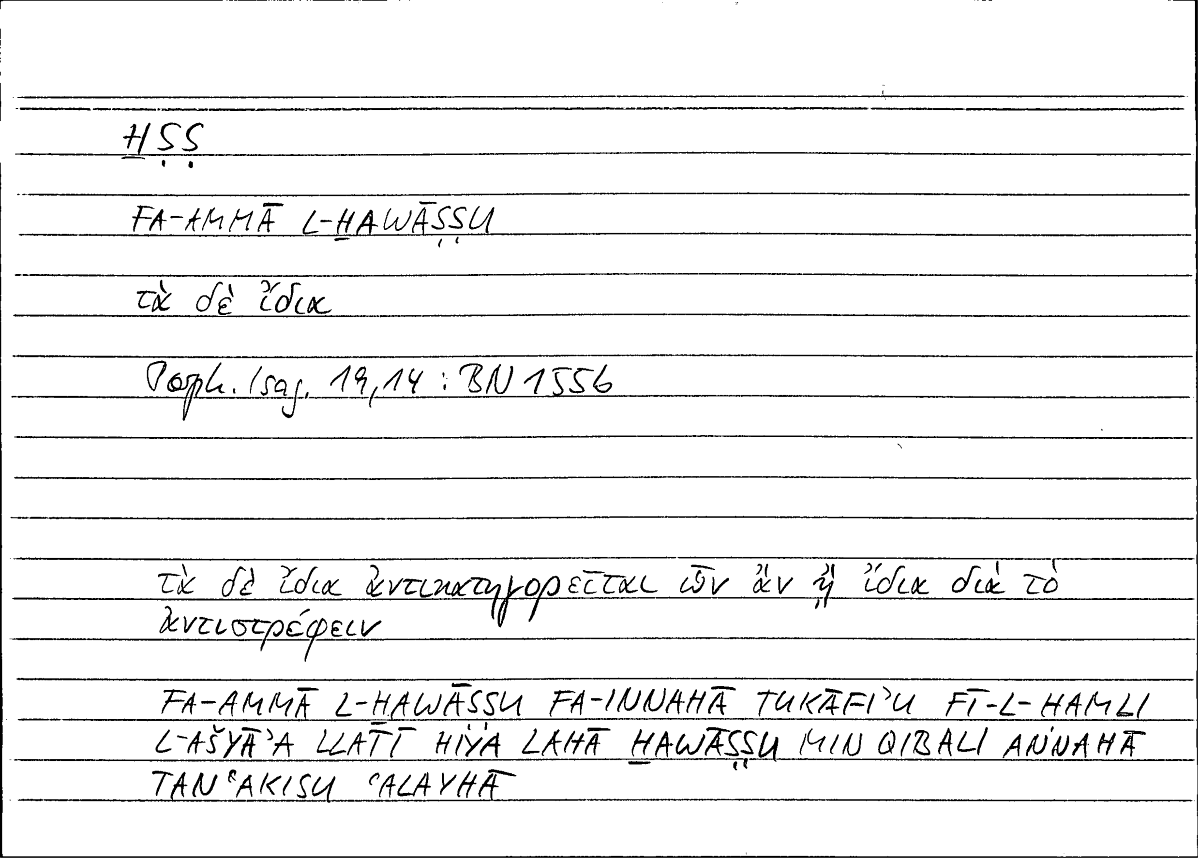 ẖṢṢ
FA-AMMĀ L-ẖAWĀṢṢU
τὰ δὲ ἴδια
Porph. Isag. 19,14 : BN 155b
τὰ δὲ ἴδια ἀντικατηγορεῖται ὧν ἂν ᾖ ἴδια διὰ τὸ
ἀντιστρέφειν
FA-AMMĀ L-ẖAWĀSSU FA-INNAHĀ TUKĀFIʾU FĪ-L-HAMLI
L-AŠYĀʾA LLATĪ HIYA LAHĀ ẖAWĀṢṢU MIN QIBALI ANNAHĀ
TANʿAKISU ʿALAYHĀ